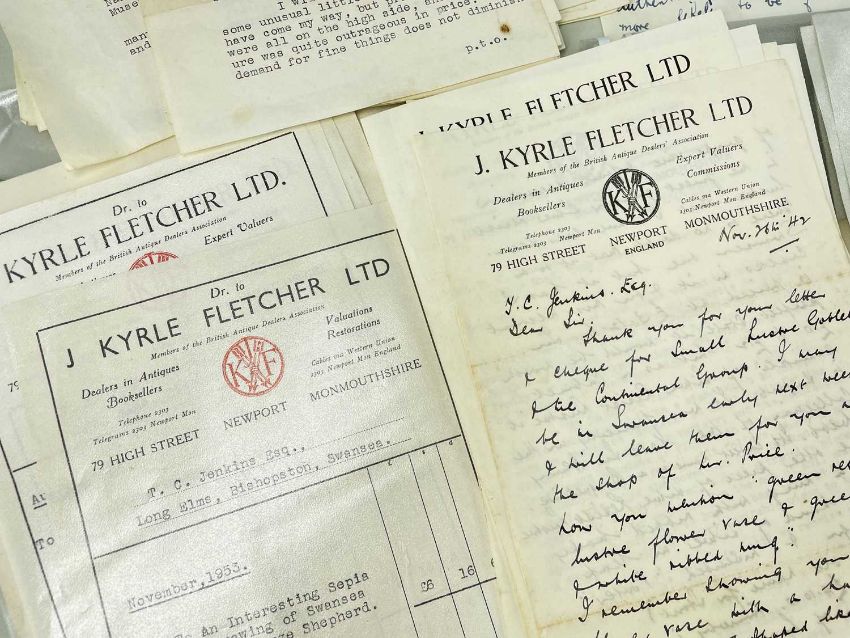 Na
Muse
man
and
I wi
some unusual little
have come my way, but pr
were all on the high side, an
ure was quite outrageous in price.
demand for fine things does not diminish
p.t.o.
more likely to be f
Dr. to
KYRLE FLETCHER LTD.
Members of the British Antique Dealers Association
Expert Valuers
79
At
To
Dr. to
J KYRLE FLETCHER LTD
Members of the British Antique Dealers Association
Dealers in Antiques
Booksellers
KF
Valuations
Restorations
Telephone 2303
Telegrams 2303 Newport Mon
Cables via Western Union
2303 Newport Mon England
79 HIGH STREET NEWPORT MONMOUTHSHIRE
T. C. Jenkins Esq.,
Long Elms, Bishopston, Swansea.
November, 1953.
To An Interesting Sepia
rawing of Swansea
ge Shepherd.
£6 16 6
J KYRLE FLETCHER LTD
J. KYRLE FLETCHER LTD
Members of the British Antique Dealers' Association
Dealers in Antiques
Booksellers
KF
Expert Valuers
Commissions
Telephone 2303
Telegrams 2303 Newport Mon
Cables via Western Union
2303 Newport Mon England
79 HIGH STREET NEWPORT MONMOUTHSHIRE
ENGLAND
Nov. 26th '42
T. C. Jenkins. Esq.
Dear Sir.
Thank you for your letter
& cheque for Small Lustre Goblet
& the Continental Group. I may
be in Swansea early next week
I will leave them for you a
the shop of Mr. Price.
how you mention "green
lustre flower vase & gree
& white ribbed mug".
I remember showing you
vase with a
shaped like